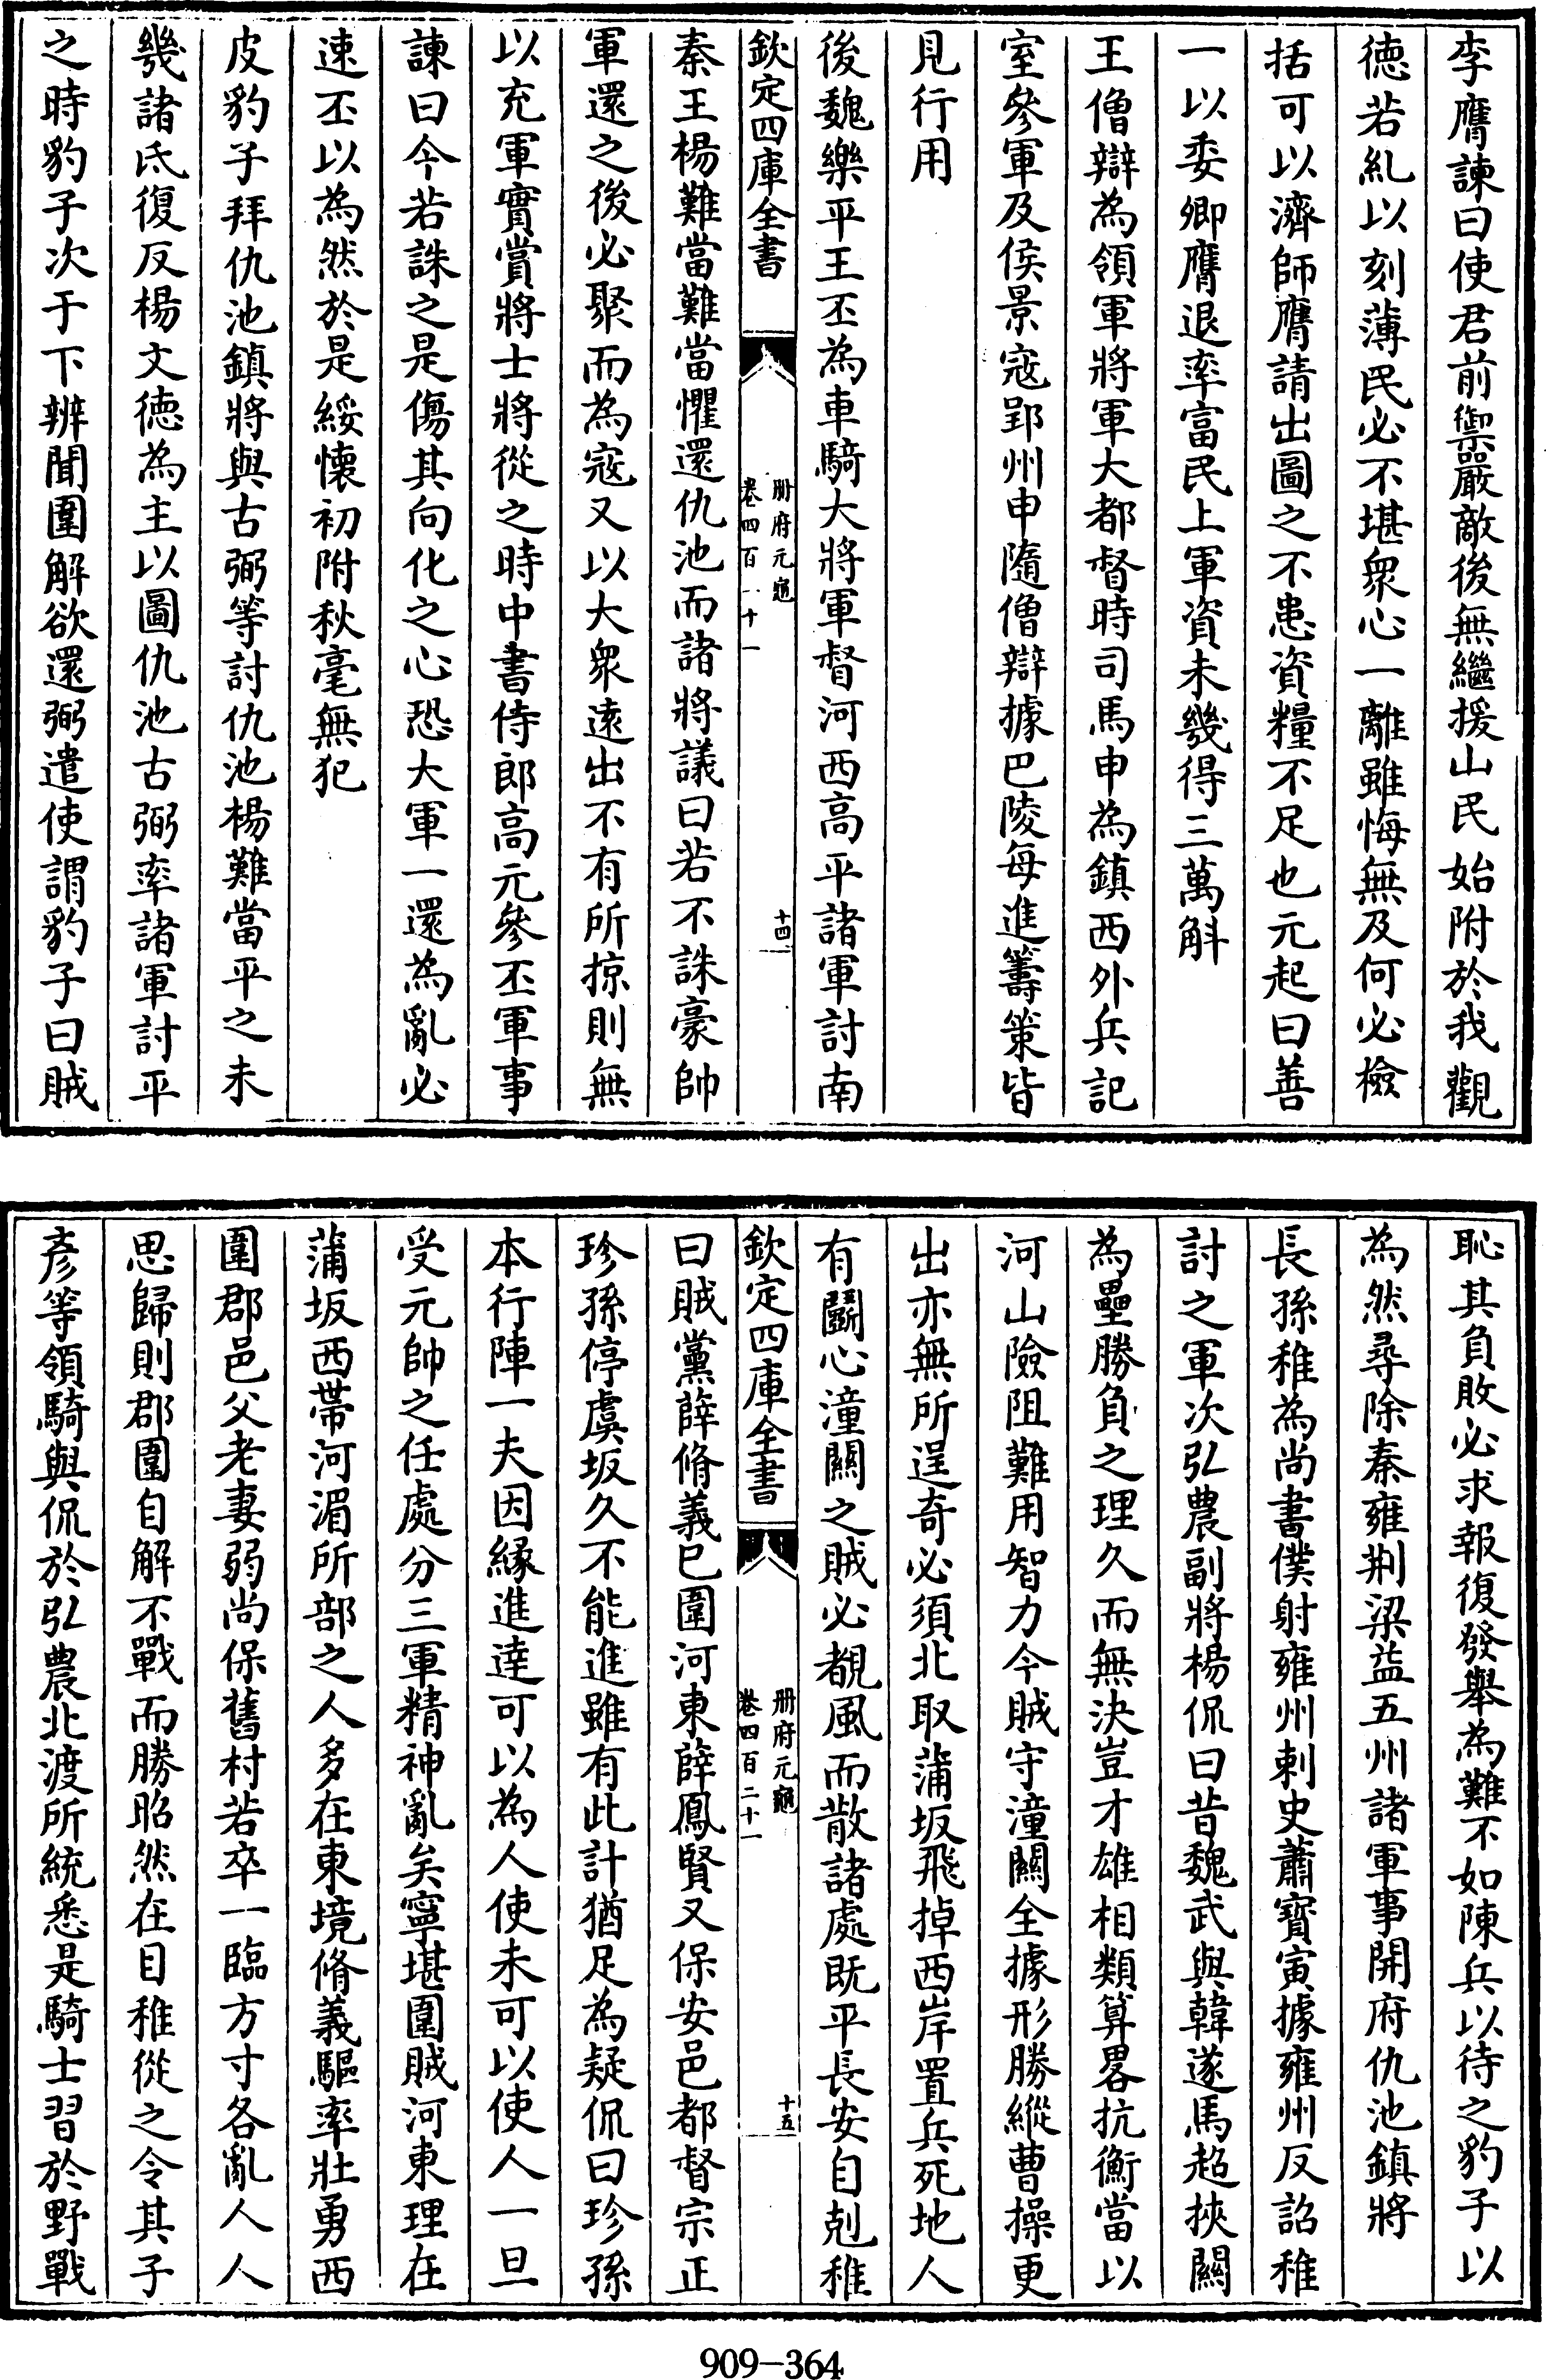 李膺諫曰使君前禦嚴敵後無繼援山民始附於我觀
徳若糺以刻薄民必不堪衆心一離雖悔無及何必檢
括可以濟師膺請出圖之不患資糧不足也元起曰善
一以委卿膺退率富民上軍資未幾得三萬斛
王僧辯為領軍將軍大都督時司馬申為鎮西外兵記
室參軍及侯景寇郢州申隨僧辯據巴陵每進籌策皆
見行用
後魏樂平王丕為車騎大將軍督河西高平諸軍討南
欽定四庫全書
册府元龜
卷四百二十一
十四
秦王楊難當難當懼還仇池而諸將議曰若不誅豪帥
軍還之後必聚而為寇又以大衆遠出不有所掠則無
以充軍實賞將士將從之時中書侍郎高元參丕軍事
諫曰今若誅之是傷其向化之心恐大軍一還為亂必
速丕以為然於是綏懷初附秋毫無犯
皮豹子拜仇池鎮將與古弼等討仇池楊難當平之未
幾諸氐復反楊文徳為主以圖仇池古弼率諸軍討平
之時豹子次于下辨聞圍解欲還弼遣使謂豹子曰賊
恥其負敗必求報復發舉為難不如陳兵以待之豹子以
為然尋除秦雍荆梁益五州諸軍事開府仇池鎮將
長孫稚為尚書僕射雍州刺史蕭寳寅據雍州反詔稚
討之軍次弘農副將楊侃曰昔魏武與韓遂馬超挾關
為壘勝負之理久而無決豈才雄相類算畧抗衡當以
河山險阻難用智力今賊守潼關全據形勝縱曹操更
出亦無所逞奇必須北取蒲坂飛掉西岸置兵死地人
有鬭心潼關之賊必覩風而散諸處既平長安自剋稚
欽定四庫全書
册府元龜
卷四百二十一
十五
曰賊黨薛脩義已圍河東薛鳳賢又保安邑都督宗正
珍孫停虞坂久不能進雖有此計猶足為疑侃曰珍孫
本行陣一夫因縁進達可以為人使未可以使人一旦
受元帥之任處分三軍精神亂矣寧堪圍賊河東理在
蒲坂西帶河湄所部之人多在東境脩義驅率壯勇西
圍郡邑父老妻弱尚保舊村若卒一臨方寸各亂人人
思歸則郡圍自解不戰而勝昭然在目稚從之令其子
彦等領騎與侃於弘農北渡所統悉是騎士習於野戰
909-364